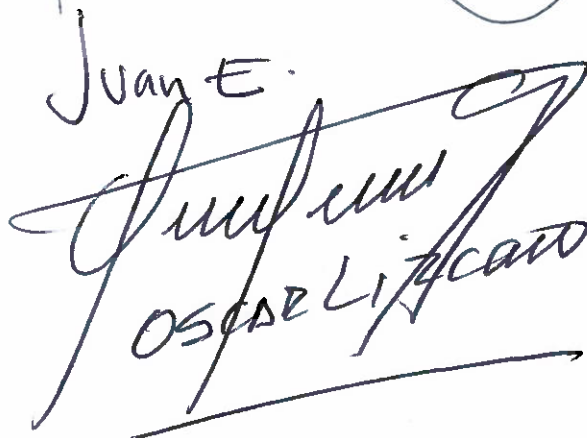 Juan E.
OSCAR LizcaNO